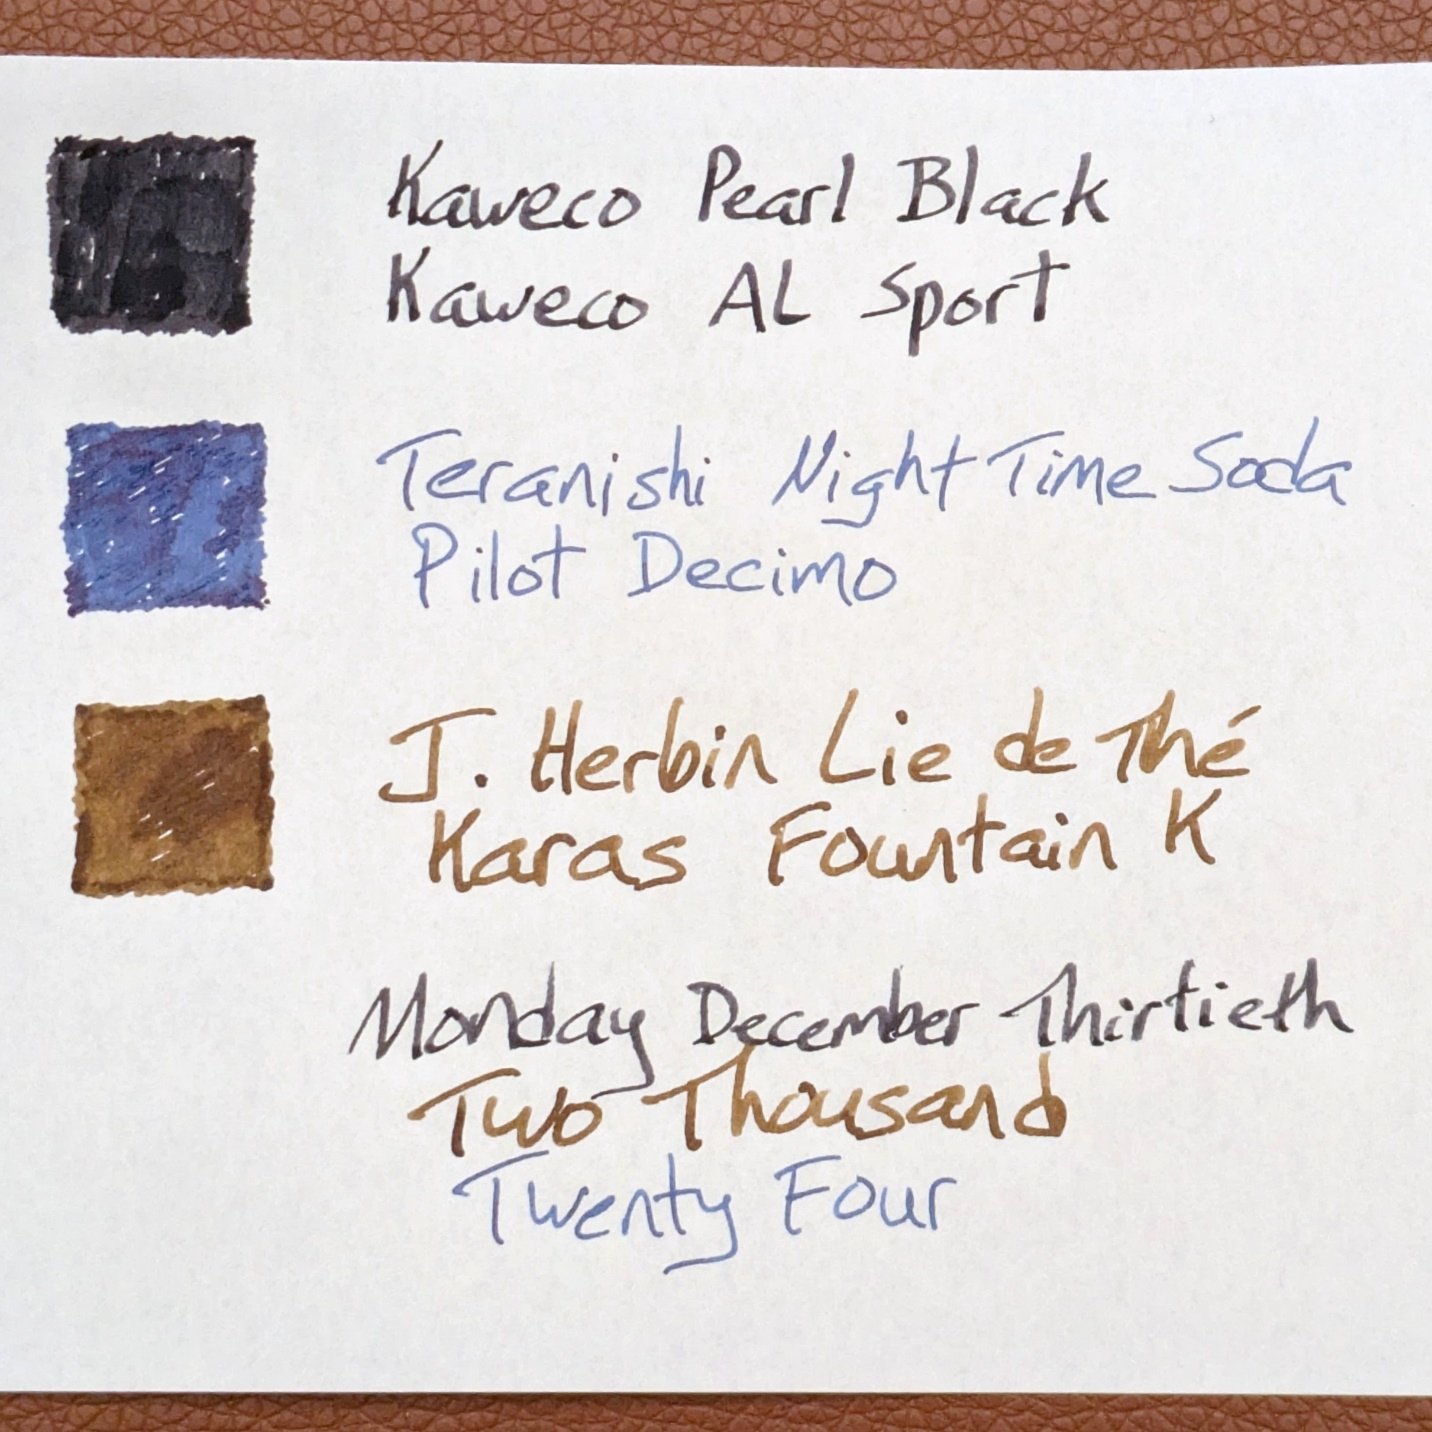 Kaweco Pearl Black
Kaweco AL Sport
Teranishi Night Time Soda
Pilot Decimo
J. Herbin Lie de Thé
Karas Fountain K
Monday December Thirtieth
Two Thousand
Twenty Four